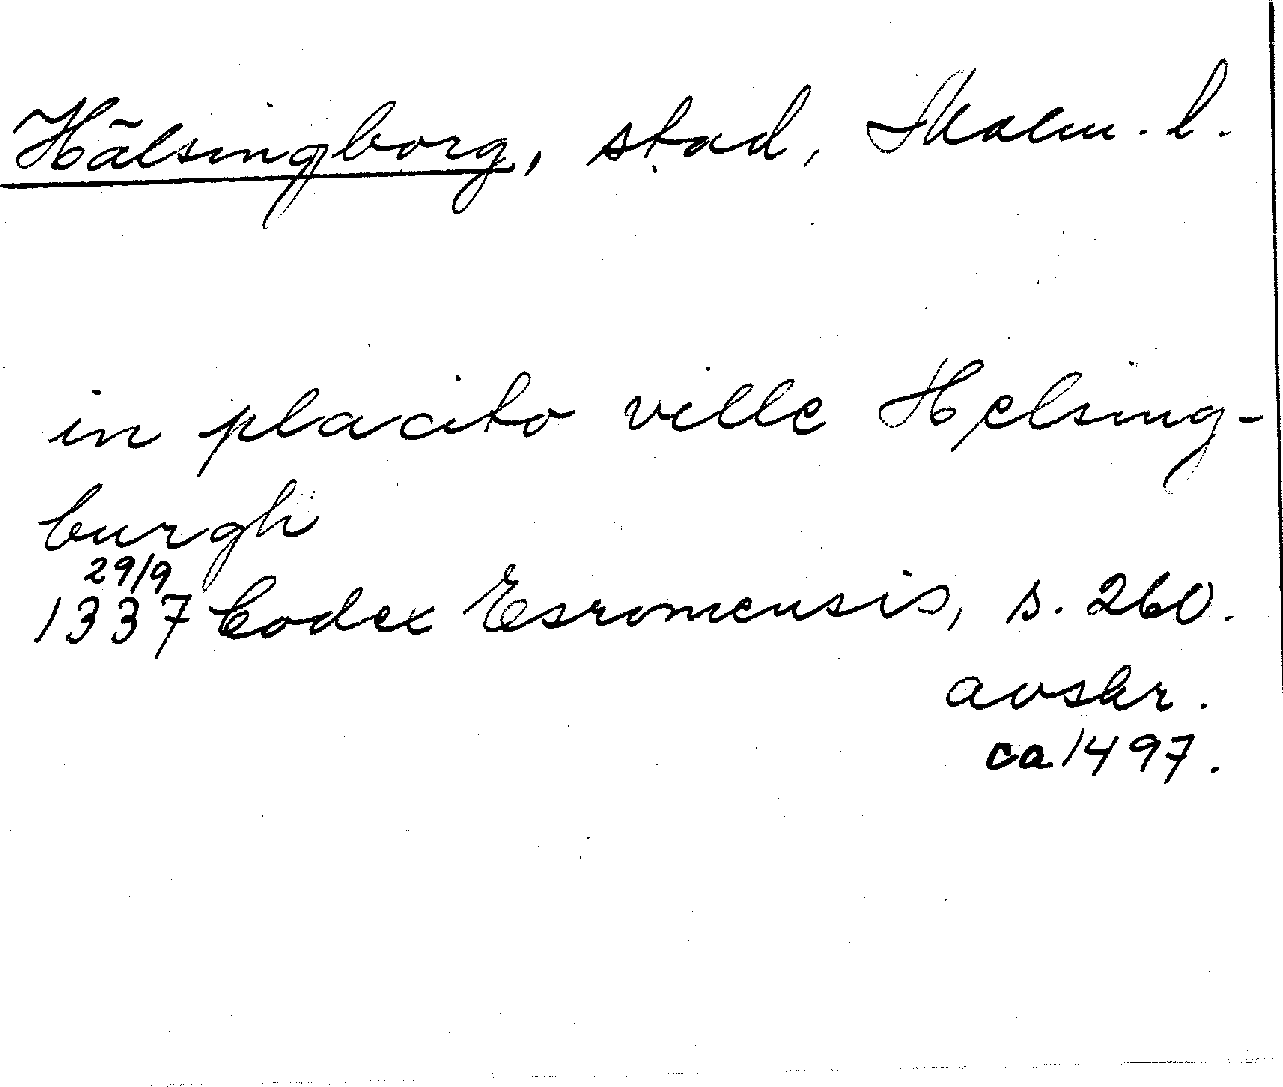 Hälsingborg, stad, Malm. l.
in placito ville Helsing-
burgh
29/9
1337 Codex Esromensis, s. 260.
avskr.
ca 1497.